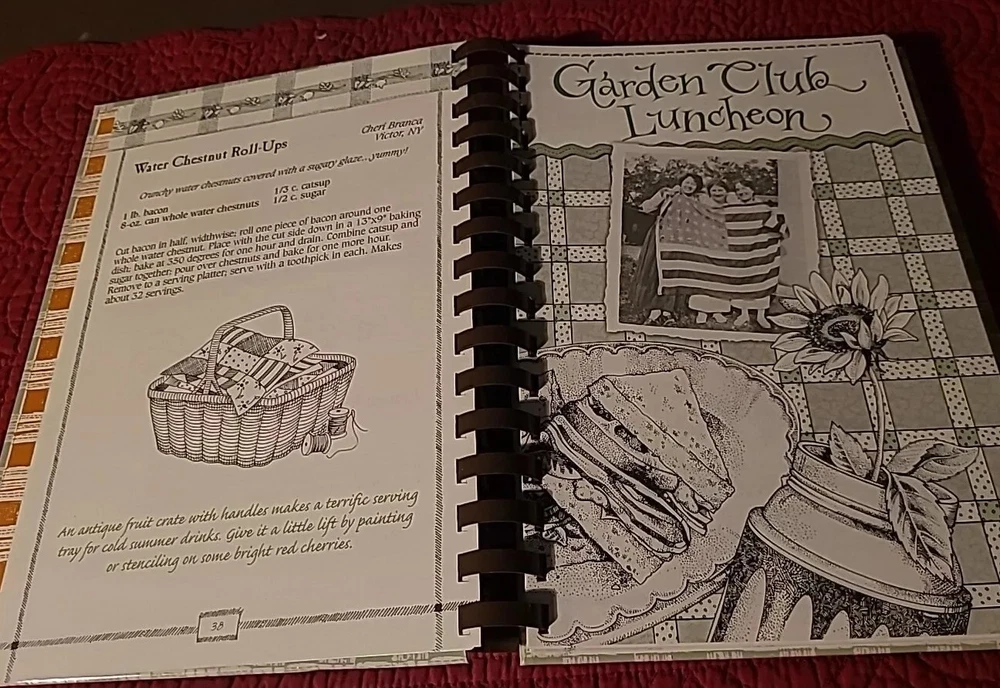 Cheri Branca
Victor, NY
Water Chestnut Roll-Ups
Crunchy water chestnuts covered with a sugary glaze...yummy!
1 lb. bacon
8-oz. can whole water chestnuts
1/3 c. catsup
1/2 c. sugar
Cut bacon in half, widthwise; roll one piece of bacon around one
whole water chestnut. Place with the cut side down in a 13"x9" baking
dish; bake at 350 degrees for one hour and drain. Combine catsup and
sugar together; pour over chestnuts and bake for one more hour.
Remove to a serving platter; serve with a toothpick in each. Makes
about 32 servings.
An antique fruit crate with handles makes a terrific serving
tray for cold summer drinks. Give it a little lift by painting
or stenciling on some bright red cherries.
38
Garden Club
Luncheon